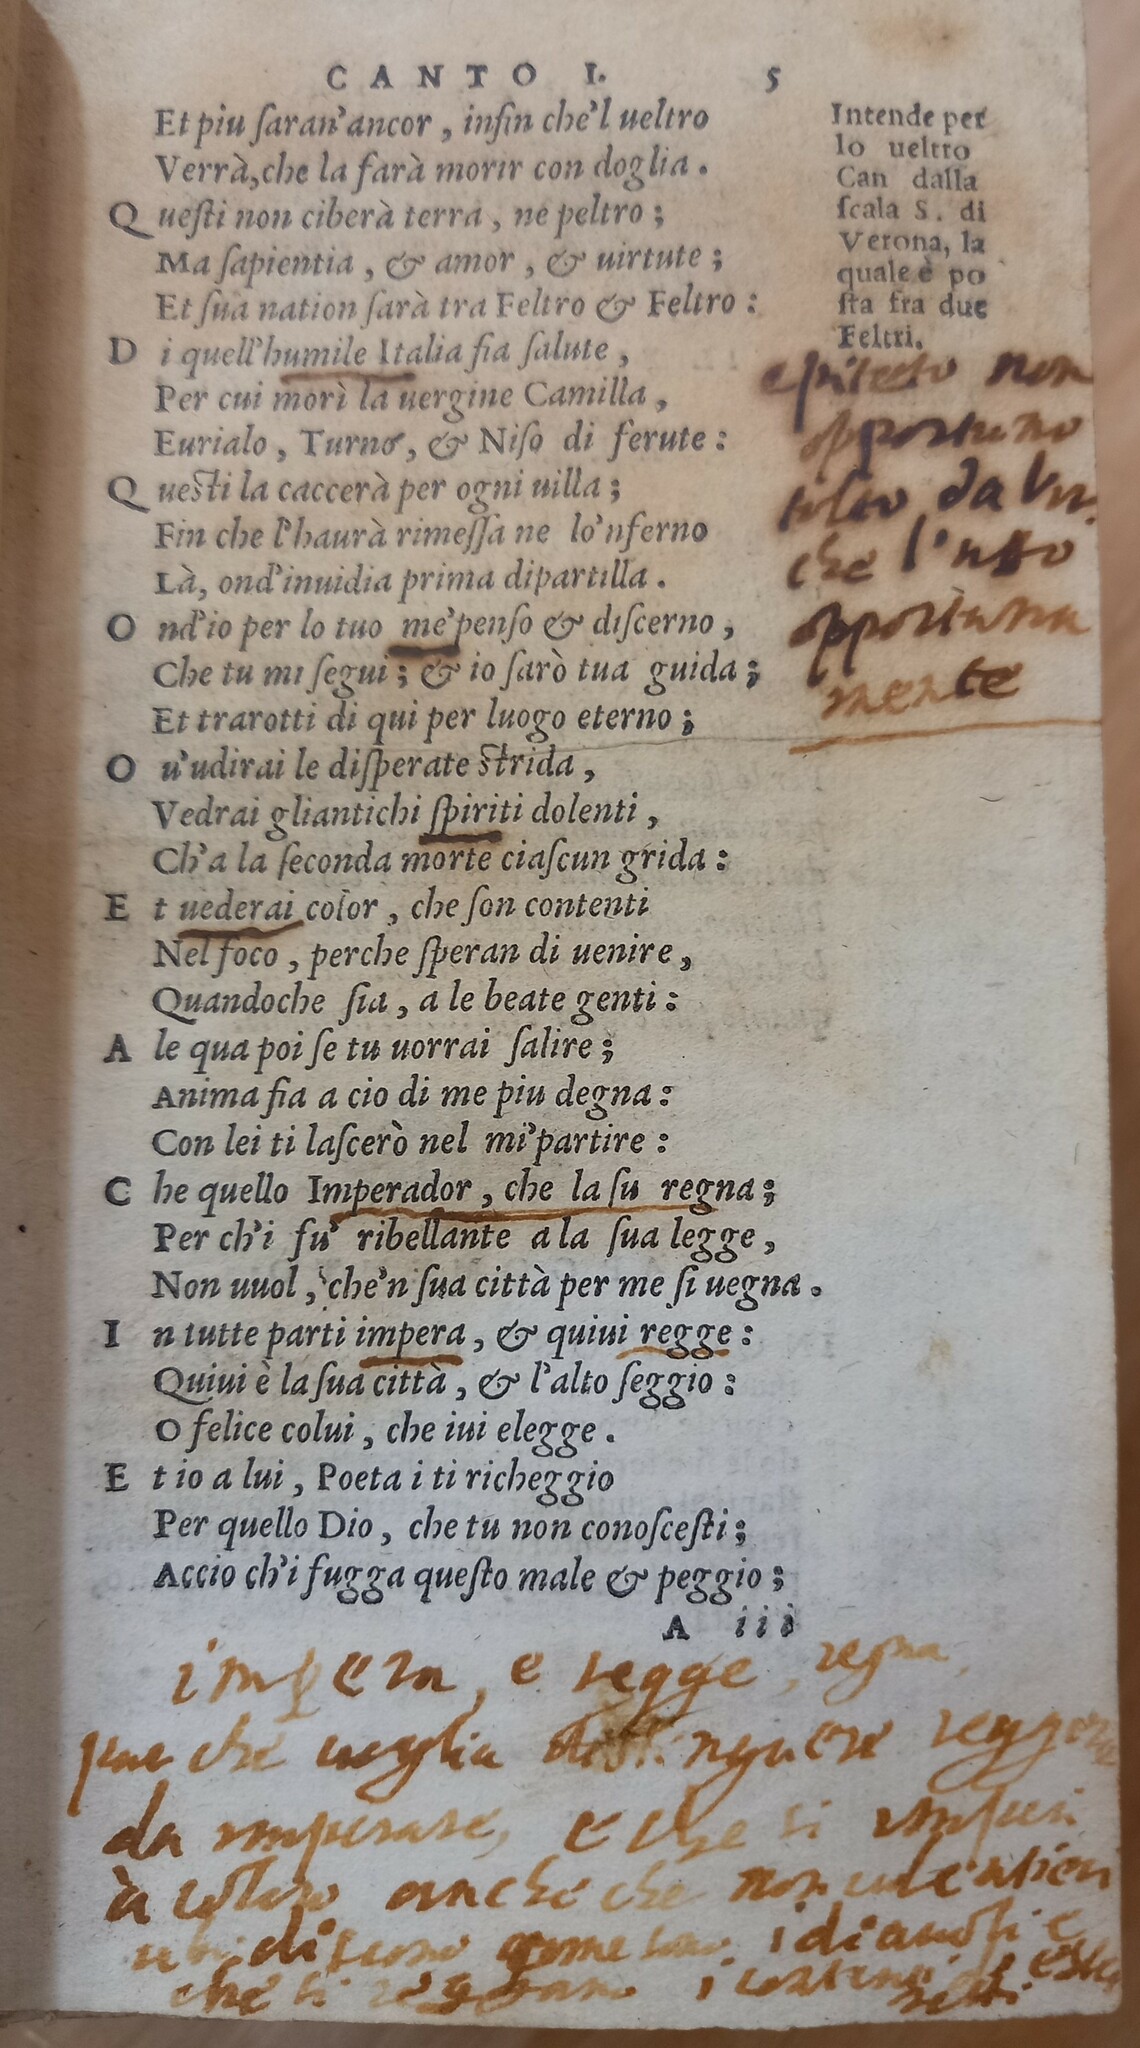 CANTO I. 5
Et piu ſaran'ancor, inſin che'l ueltro
Verrà, che la farà morir con doglia.
Queſti non ciberà terra, ne peltro;
Ma ſapientia, & amor, & uirtute;
Et ſua nation ſarà tra Feltro & Feltro:
Di quell'humile Italia fia ſalute,
Per cui morì la uergine Camilla,
Eurialo, Turno, & Niſo di ferute:
Queſti la caccerà per ogni uilla;
Fin che l'haurà rimeſſa ne lo'nferno
Là, ond'inuidia prima dipartilla.
Ond'io per lo tuo me'penſo & diſcerno,
Che tu mi ſegui; & io ſarò tua guida;
Et trarotti di qui per luogo eterno;
Ou'udirai le diſperate ſtrida,
Vedrai gliantichi ſpiriti dolenti,
Ch'a la ſeconda morte ciaſcun grida:
Et uederai color, che ſon contenti
Nel foco, perche ſperan di uenire,
Quandoche ſia, a le beate genti:
A le qua poi ſe tu uorrai ſalire;
Anima fia a cio di me piu degna:
Con lei ti laſcerò nel mi'partire:
Che quello Imperador, che la ſu regna;
Per ch'i fu' ribellante a la ſua legge,
Non uuol, che'n ſua città per me ſi uegna.
In tutte parti impera, & quiui regge:
Quiui è la ſua città, & l'alto ſeggio:
O felice colui, che iui elegge.
Et io a lui, Poeta i ti richeggio
Per quello Dio, che tu non conoſceſti;
Accio ch'i fugga queſto male & peggio;
A iii
Intende per
lo ueltro
Can dalla
ſcala S. di
Verona, la
quale è po
ſta fra due
Feltri.
epiteto non
opportuno
tolto da Vir.
che l'usò
opportuna
mente
impera, e regge, regna,
par che uoglia distinguere reggere
da imperare, e che si imperi
à coloro anche che non
ubidiscono come sono i diauoli e
che si reggano i